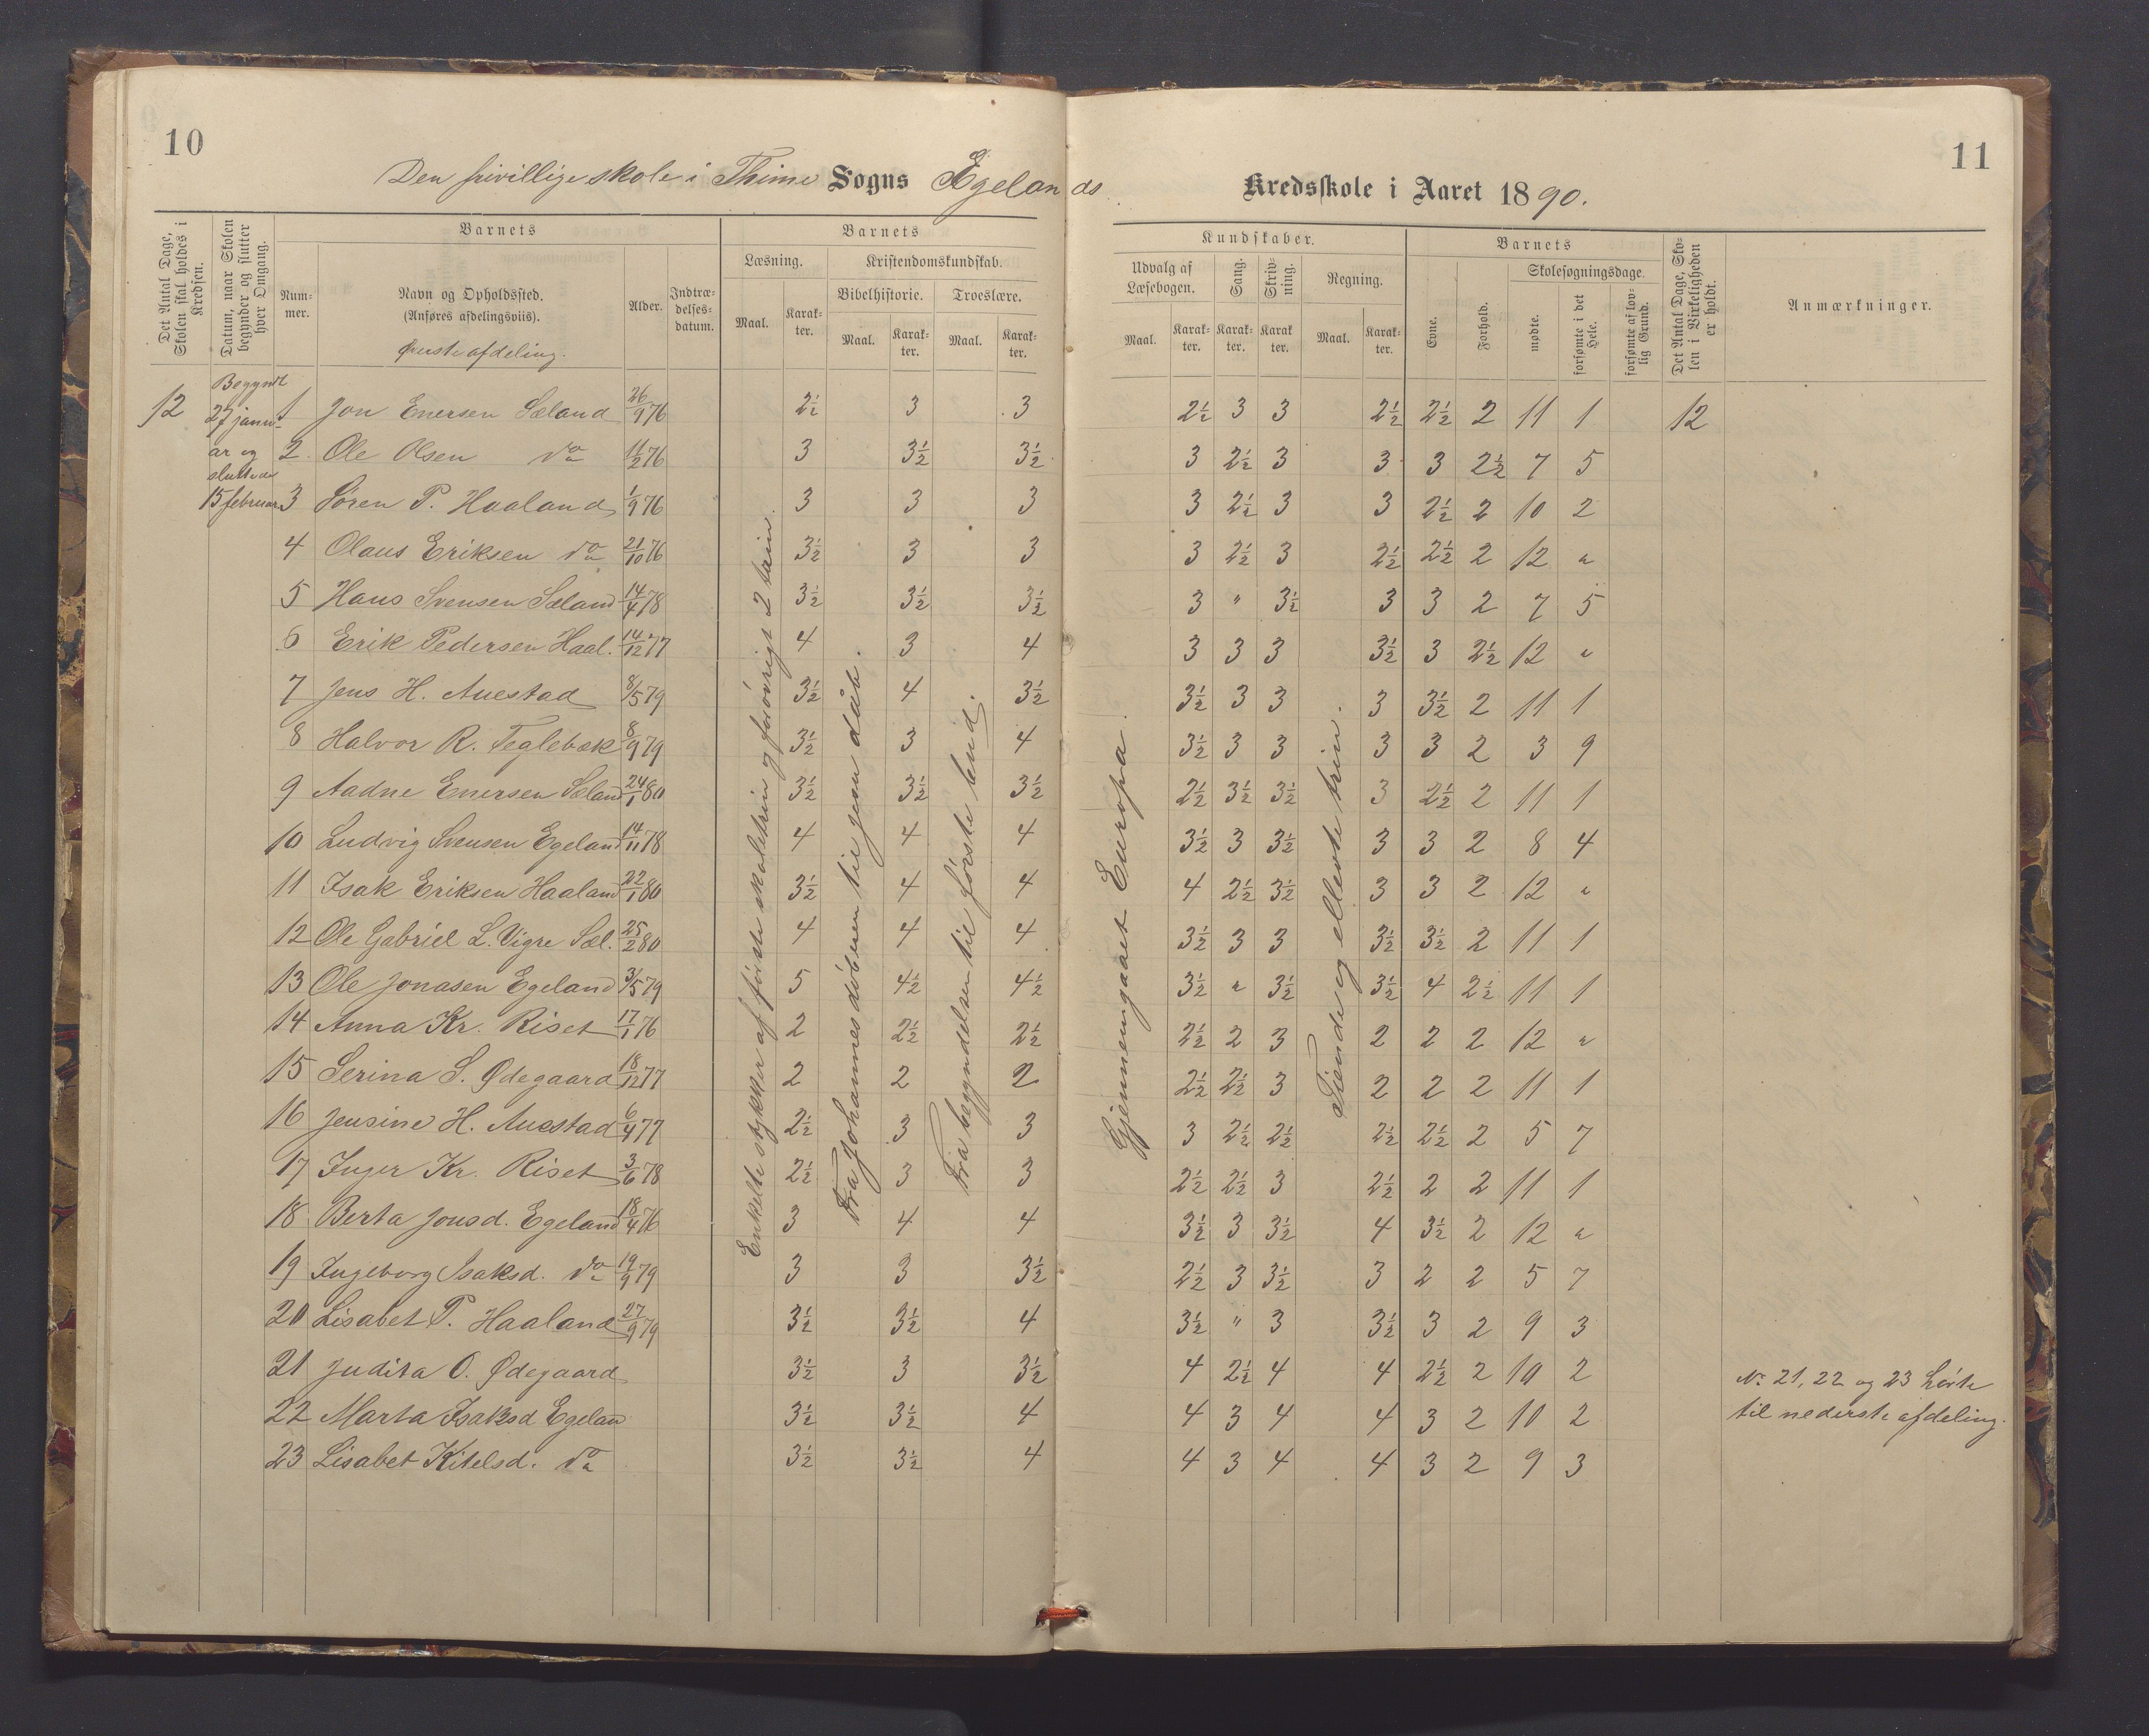 10
11
Den frivillige skole i Thime Sogns Egelands
Kredsskole i Aaret 1890.
Det Antal Dage, Skolen skal holdes i Kredsen.
Datum, naar Skolen begynder og slutter hver Omgang.
Barnets
Nummer.
Navn og Opholdssted.
(Anføres afdelingsviis).
Øverste afdeling.
Alder.
Indtrædelsesdatum.
Barnets
Læsning.
Maal.
Karakter.
Kristendomskundskab.
Bibelhistorie.
Maal.
Karakter.
Troeslære.
Maal.
Karakter.
Kundskaber.
Udvalg af Læsebogen.
Maal.
Karakter.
Sang.
Karakter.
Skrivning.
Karakter.
Regning.
Maal.
Karakter.
Barnets
Evne.
Forhold.
Skolesøgningsdage.
mødte.
forsømte i det Hele.
forsømte af lovlig Grund.
Det Antal Dage, Skolen i Virkeligheden er holdt.
Anmærkninger.
12
Begyndt
27 janu-
ar og
sluttede
15 februar
1 Jon Enersen Sæland 26/9 76 2½ 3 3 2½ 3 3 2½ 2½ 2 11 1 12
2. Ole Olsen do 11/2 76 3 3½ 3½ 3 2½ 3 3 3 2½ 7 5
3 Sören P. Haaland 1/9 76 3 3 3 3 2½ 3 3 2½ 2 10 2
4 Olaus Eriksen do 21/10 76 3½ 3 3 3 2½ 3 2½ 2½ 2 12 "
5 Hans Svensen Sæland 14/4 78 3½ 3½ 3½ 3 " 3½ 3 3 2 7 5
6 Erik Pedersen Haal. 14/12 77 4 3 4 3 3 3 3½ 3 2½ 12 "
7 Jens H. Auestad 8/5 79 3½ 4 3½ 3½ 3 3 3 3½ 2 11 1
8 Halvor R. Teglebæk 8/9 79 3½ 3 4 3½ 3 3 3 3 2 3 9
9 Aadne Enersen Sæland 24/1 80 3½ 3½ 3½ 2½ 3½ 3½ 3 2½ 2 11 1
10 Ludvig Svensen Egeland 14/11 78 4 4 4 3½ 3 3½ 3 3 2 8 4
11 Isak Eriksen Haaland 22/1 80 3½ 4 4 4 2½ 3½ 3 3 2 12 "
12 Ole Gabriel L. Vigre Sæl. 25/2 80 4 4 4 3½ 3 3 3½ 3½ 2 11 1
13 Ole Jonasen Egeland 3/5 79 5 4½ 4½ 3½ " 3½ 3½ 4 2½ 11 1
14 Anna Kr. Riset 17/1 76 2 2½ 2½ 2½ 2 3 2 2 2 12 "
15 Serina S. Ødegaard 18/12 77 2 2 2 2½ 2½ 3 2 2 2 11 1
16 Jensine H. Auestad 6/4 77 2½ 3 3 3 2½ 2½ 2½ 2½ 2 5 7
17 Inger Kr. Riset 3/6 78 2½ 3 3 2½ 2½ 3 2½ 2 2 11 1
18 Berta Jonsd. Egeland 18/4 76 3 4 4 3½ 3 3½ 4 3½ 2 12 "
19 Ingeborg Isaksd. do 19/9 79 3 3 3½ 2½ 3 3½ 3 2 2 5 7
20 Lisabet P. Haaland 27/9 79 3½ 3½ 4 3½ " 3 3½ 3 2 9 3
21 Judita O. Ødegaard 3½ 3 3½ 4 2½ 4 4 2½ 2 10 2
22 Marta Isaksd Egelan 3½ 3½ 4 4 3 4 4 3 2 10 2
23 Lisabet Kitelsd. do 3½ 3½ 4 4 3 4 4 3 2 9 3
Enkelte stykker af förste skoletrin og forövrigt 2 trin.
Fra Johannes döberen til Jesu dåb.
Fra begyndelsen til förste bud.
Gjennemgaaet Europa.
Tiende og ellevte trin.
No 21, 22 og 23 hörte
til nederste afdeling.